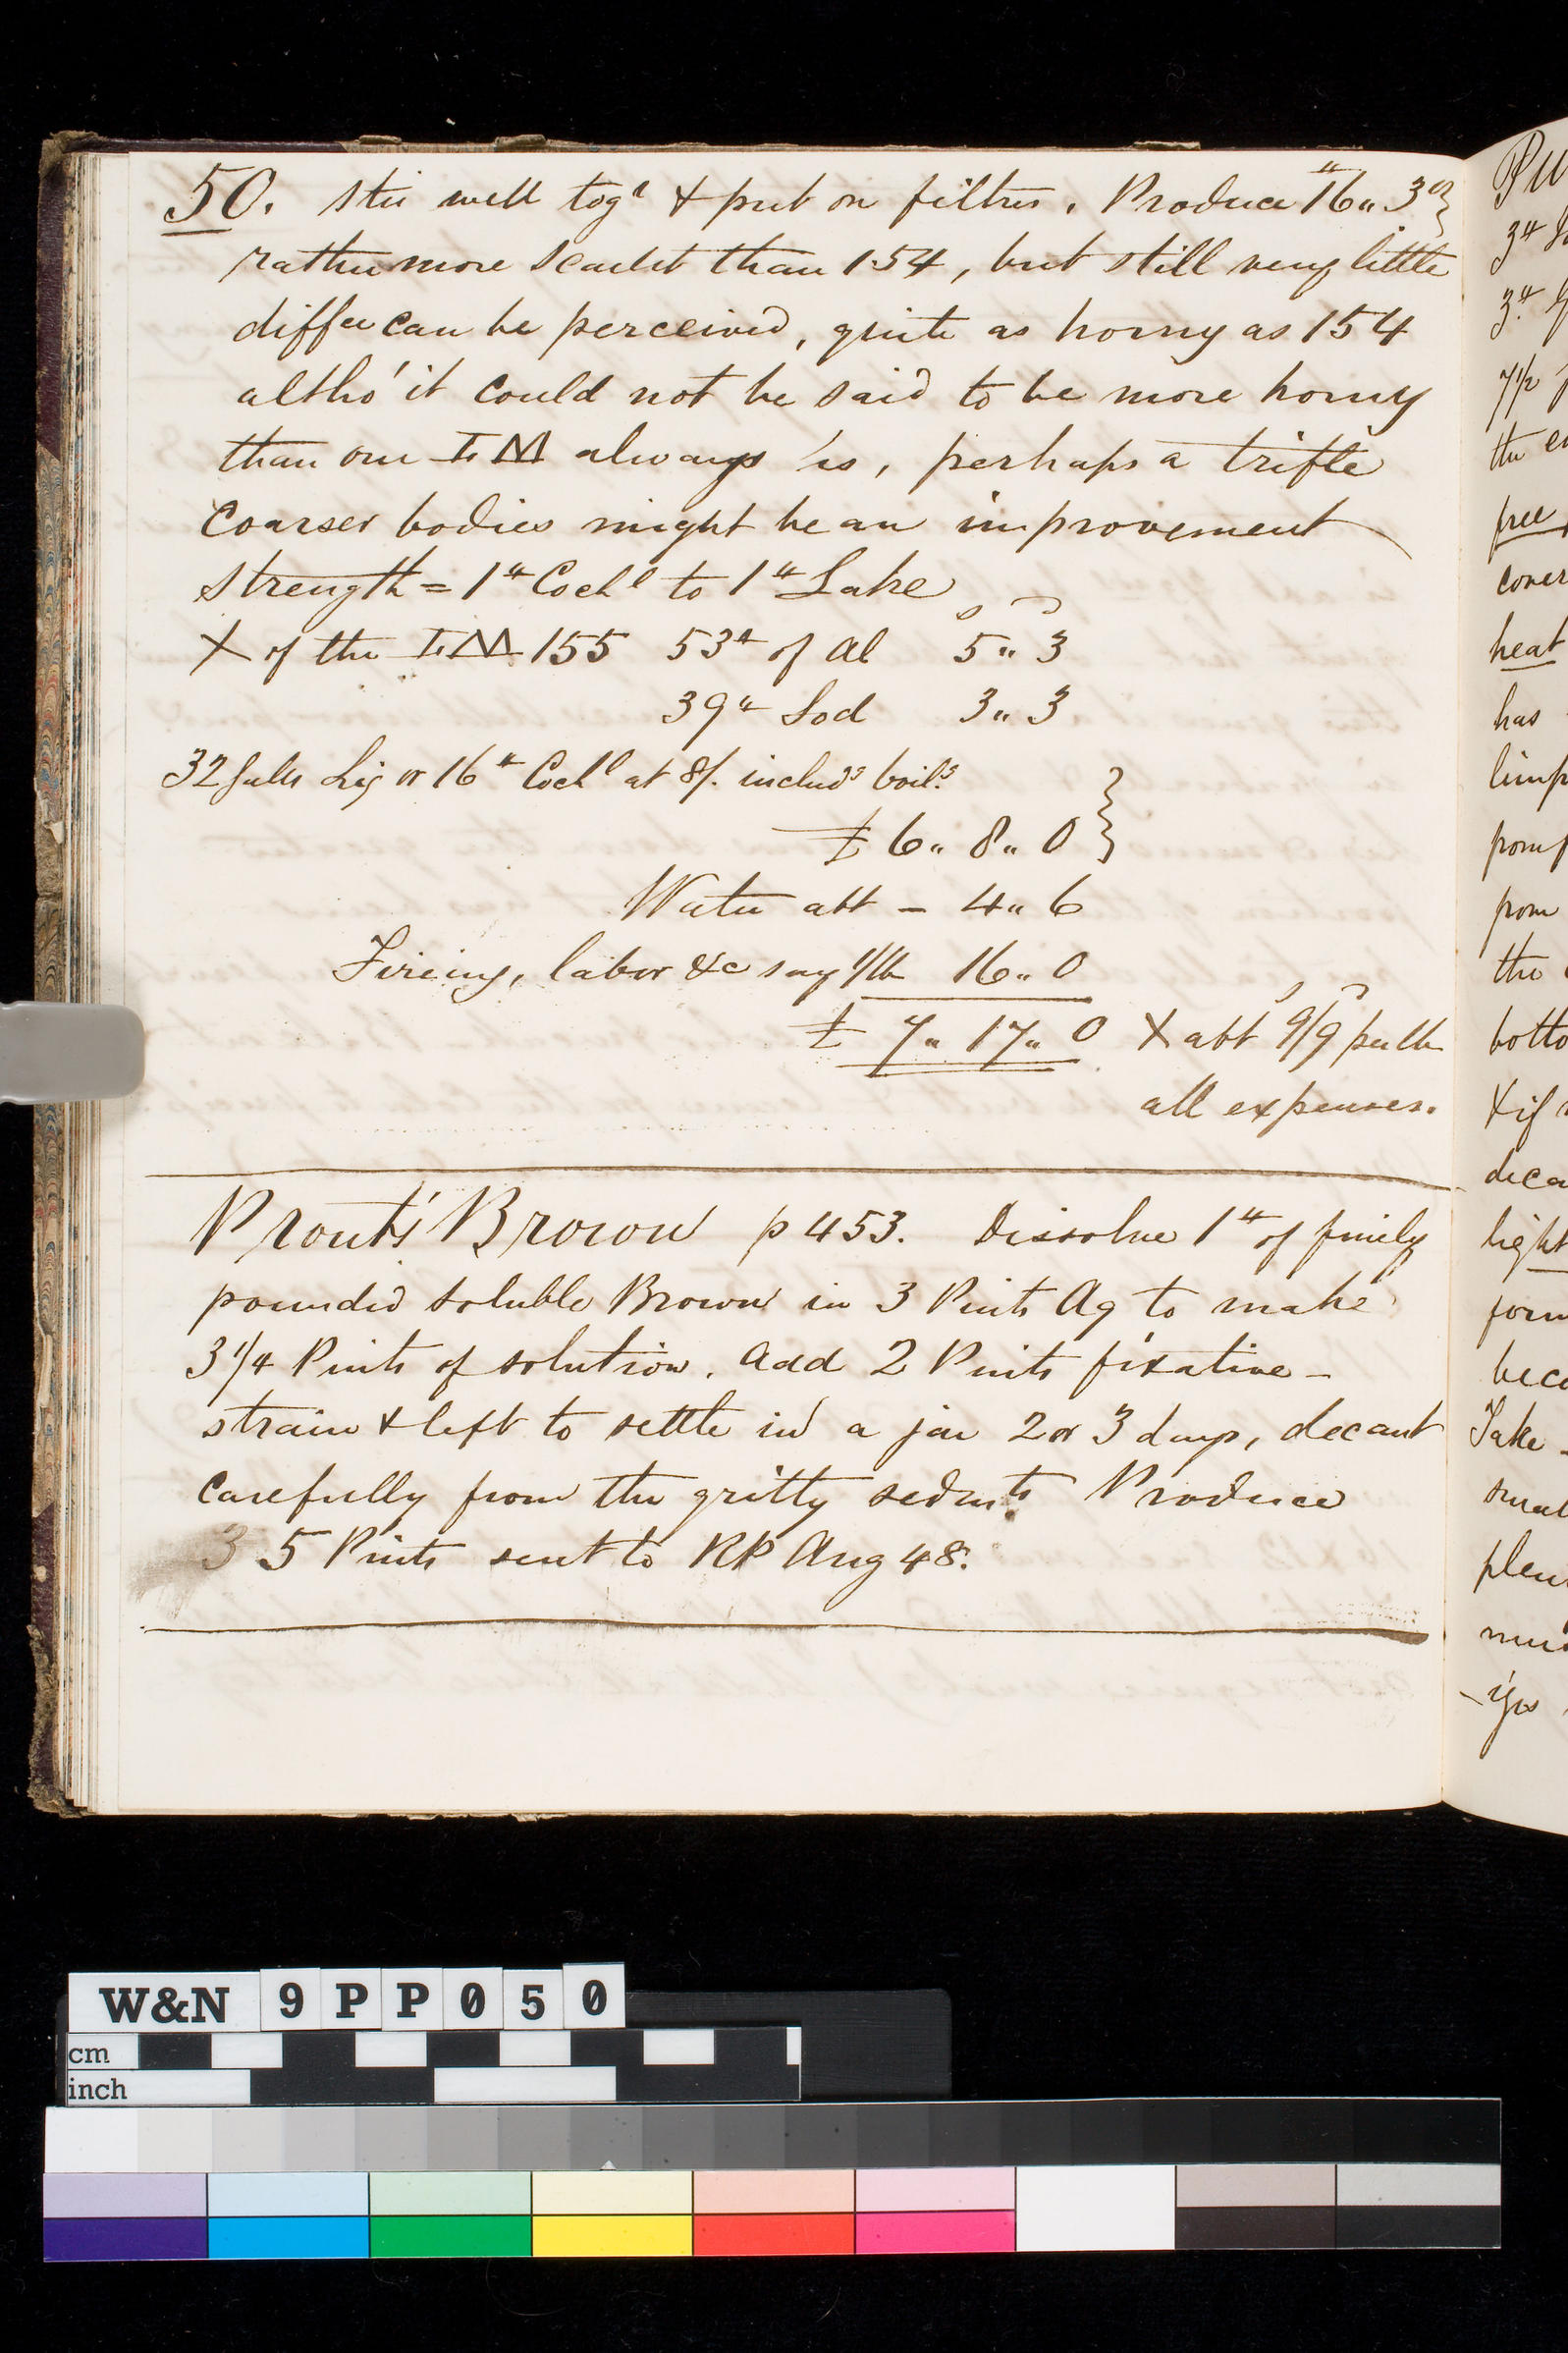 50. Stir well togr & put on filtres. Produce 16 " 3oz
rather more scarlet than 154, but still very little
diffce can be perceived, quite as horny as 154
altho' it could not be said to be more horny
than our LM always is, perhaps a trifle
coarser bodies might be an improvement
strength = 1# Cochl to 1# Lake
X of the LM 155 53# of Al 5 " 3
39# Sod 3 " 3
32 galls Liq or 16# Cochl at 8/. includg boilg
£ 6 " 8 " 0
Water abt - 4 " 6
Fireing, labor &c say 1/lb 16 " 0
£ 7 " 17 " 0 X abt 9/9 per lb
all expenses.
Prout's Brown p 453. Dissolve 1# of finely
pounded soluble Brown in 3 Pints Aq to make
3 1/4 Pints of solution. Add 2 Pints fixative -
strain & left to settle in a jar 2 or 3 days, decant
carefully from the gritty sedmt. Produce
5 Pints sent to RP Aug 48.
3#
3#
7 1/2
the
free
cover
heat
has
limp
pomp
from
the
botto
& if
deca
light
form
beco
Take
smal
plen
W&N 9PP050
cm
inch